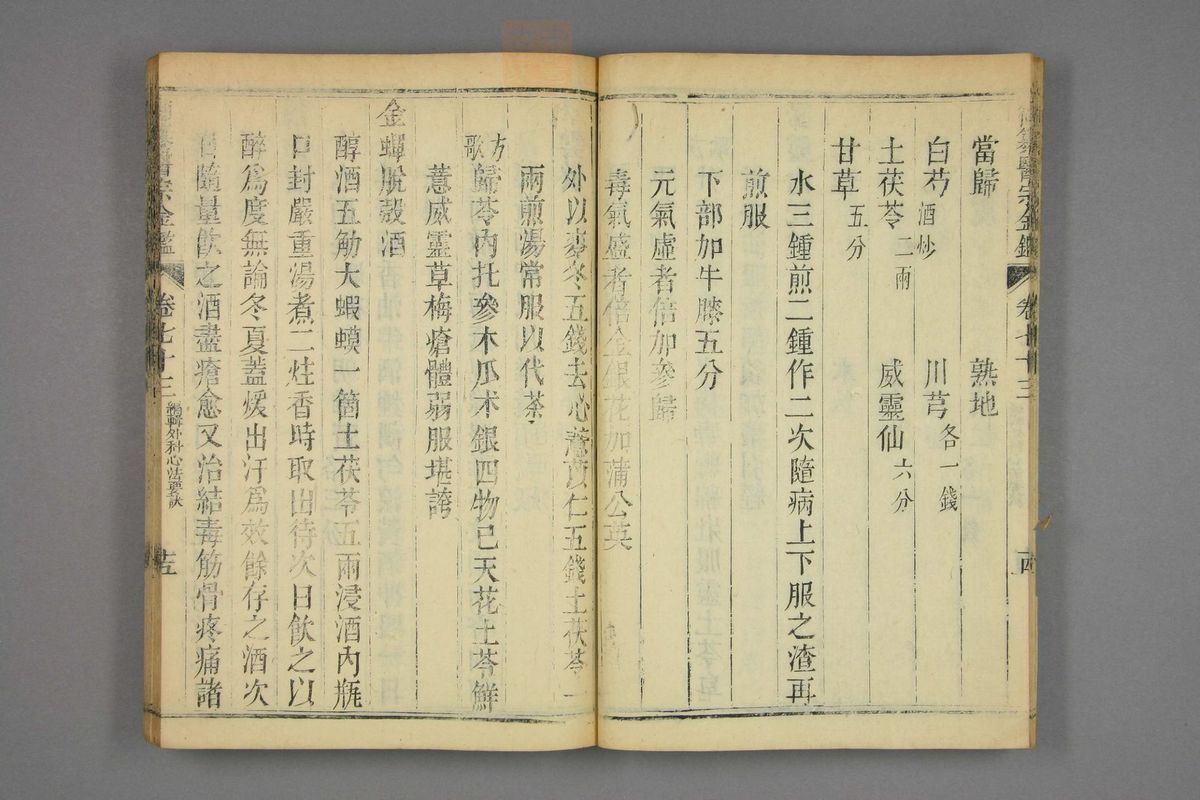 當歸　熟地
白芍酒炒　川芎各一錢
土茯苓二兩　威靈仙六分
甘草五分
水三鍾煎二鍾作二次隨病上下服之渣再
煎服
下部加牛膝五分
元氣虛者倍加參歸
毒氣盛者倍金銀花加蒲公英
外以麥冬五錢去心薏苡仁五錢土茯苓一
兩煎湯常服以代茶
方歌歸苓內托參木瓜朮銀四物己天花土苓鮮
薏威靈草梅瘡體弱服堪誇
金蟬脫殼酒
醇酒五觔大蝦蟆一箇土茯苓五兩浸酒內瓶
口封嚴重湯煮二炷香時取出待次日飲之以
醉爲度無論冬夏蓋煖出汗爲效餘存之酒次
日隨量飲之酒盡瘡愈又治結毒筋骨疼痛諸
醫宗金鑑　卷七十三　編輯外科心法要訣　十五